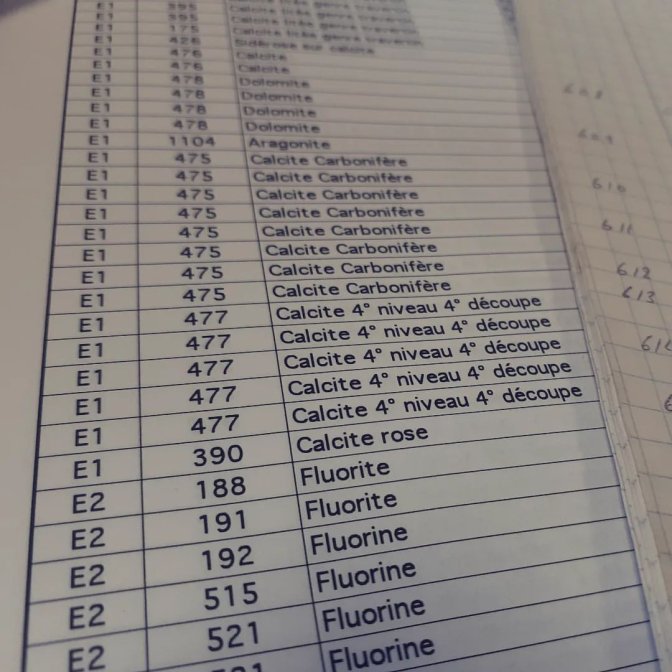 E1 426 Sidérose sur calcite
E1 476 Calcite
E1 476 Calcite
E1 478 Dolomite
E1 478 Dolomite
E1 478 Dolomite
E1 478 Dolomite
E1 1104 Aragonite
E1 475 Calcite Carbonifère
E1 475 Calcite Carbonifère
E1 475 Calcite Carbonifère
E1 475 Calcite Carbonifère
E1 475 Calcite Carbonifère
E1 475 Calcite Carbonifère
E1 475 Calcite Carbonifère
E1 475 Calcite Carbonifère
E1 477 Calcite 4° niveau 4° découpe
E1 477 Calcite 4° niveau 4° découpe
E1 477 Calcite 4° niveau 4° découpe
E1 477 Calcite 4° niveau 4° découpe
E1 477 Calcite 4° niveau 4° découpe
E1 390 Calcite rose
E2 188 Fluorite
E2 191 Fluorite
E2 192 Fluorine
E2 515 Fluorine
E2 521 Fluorine
Fluorine
610
611
612
613